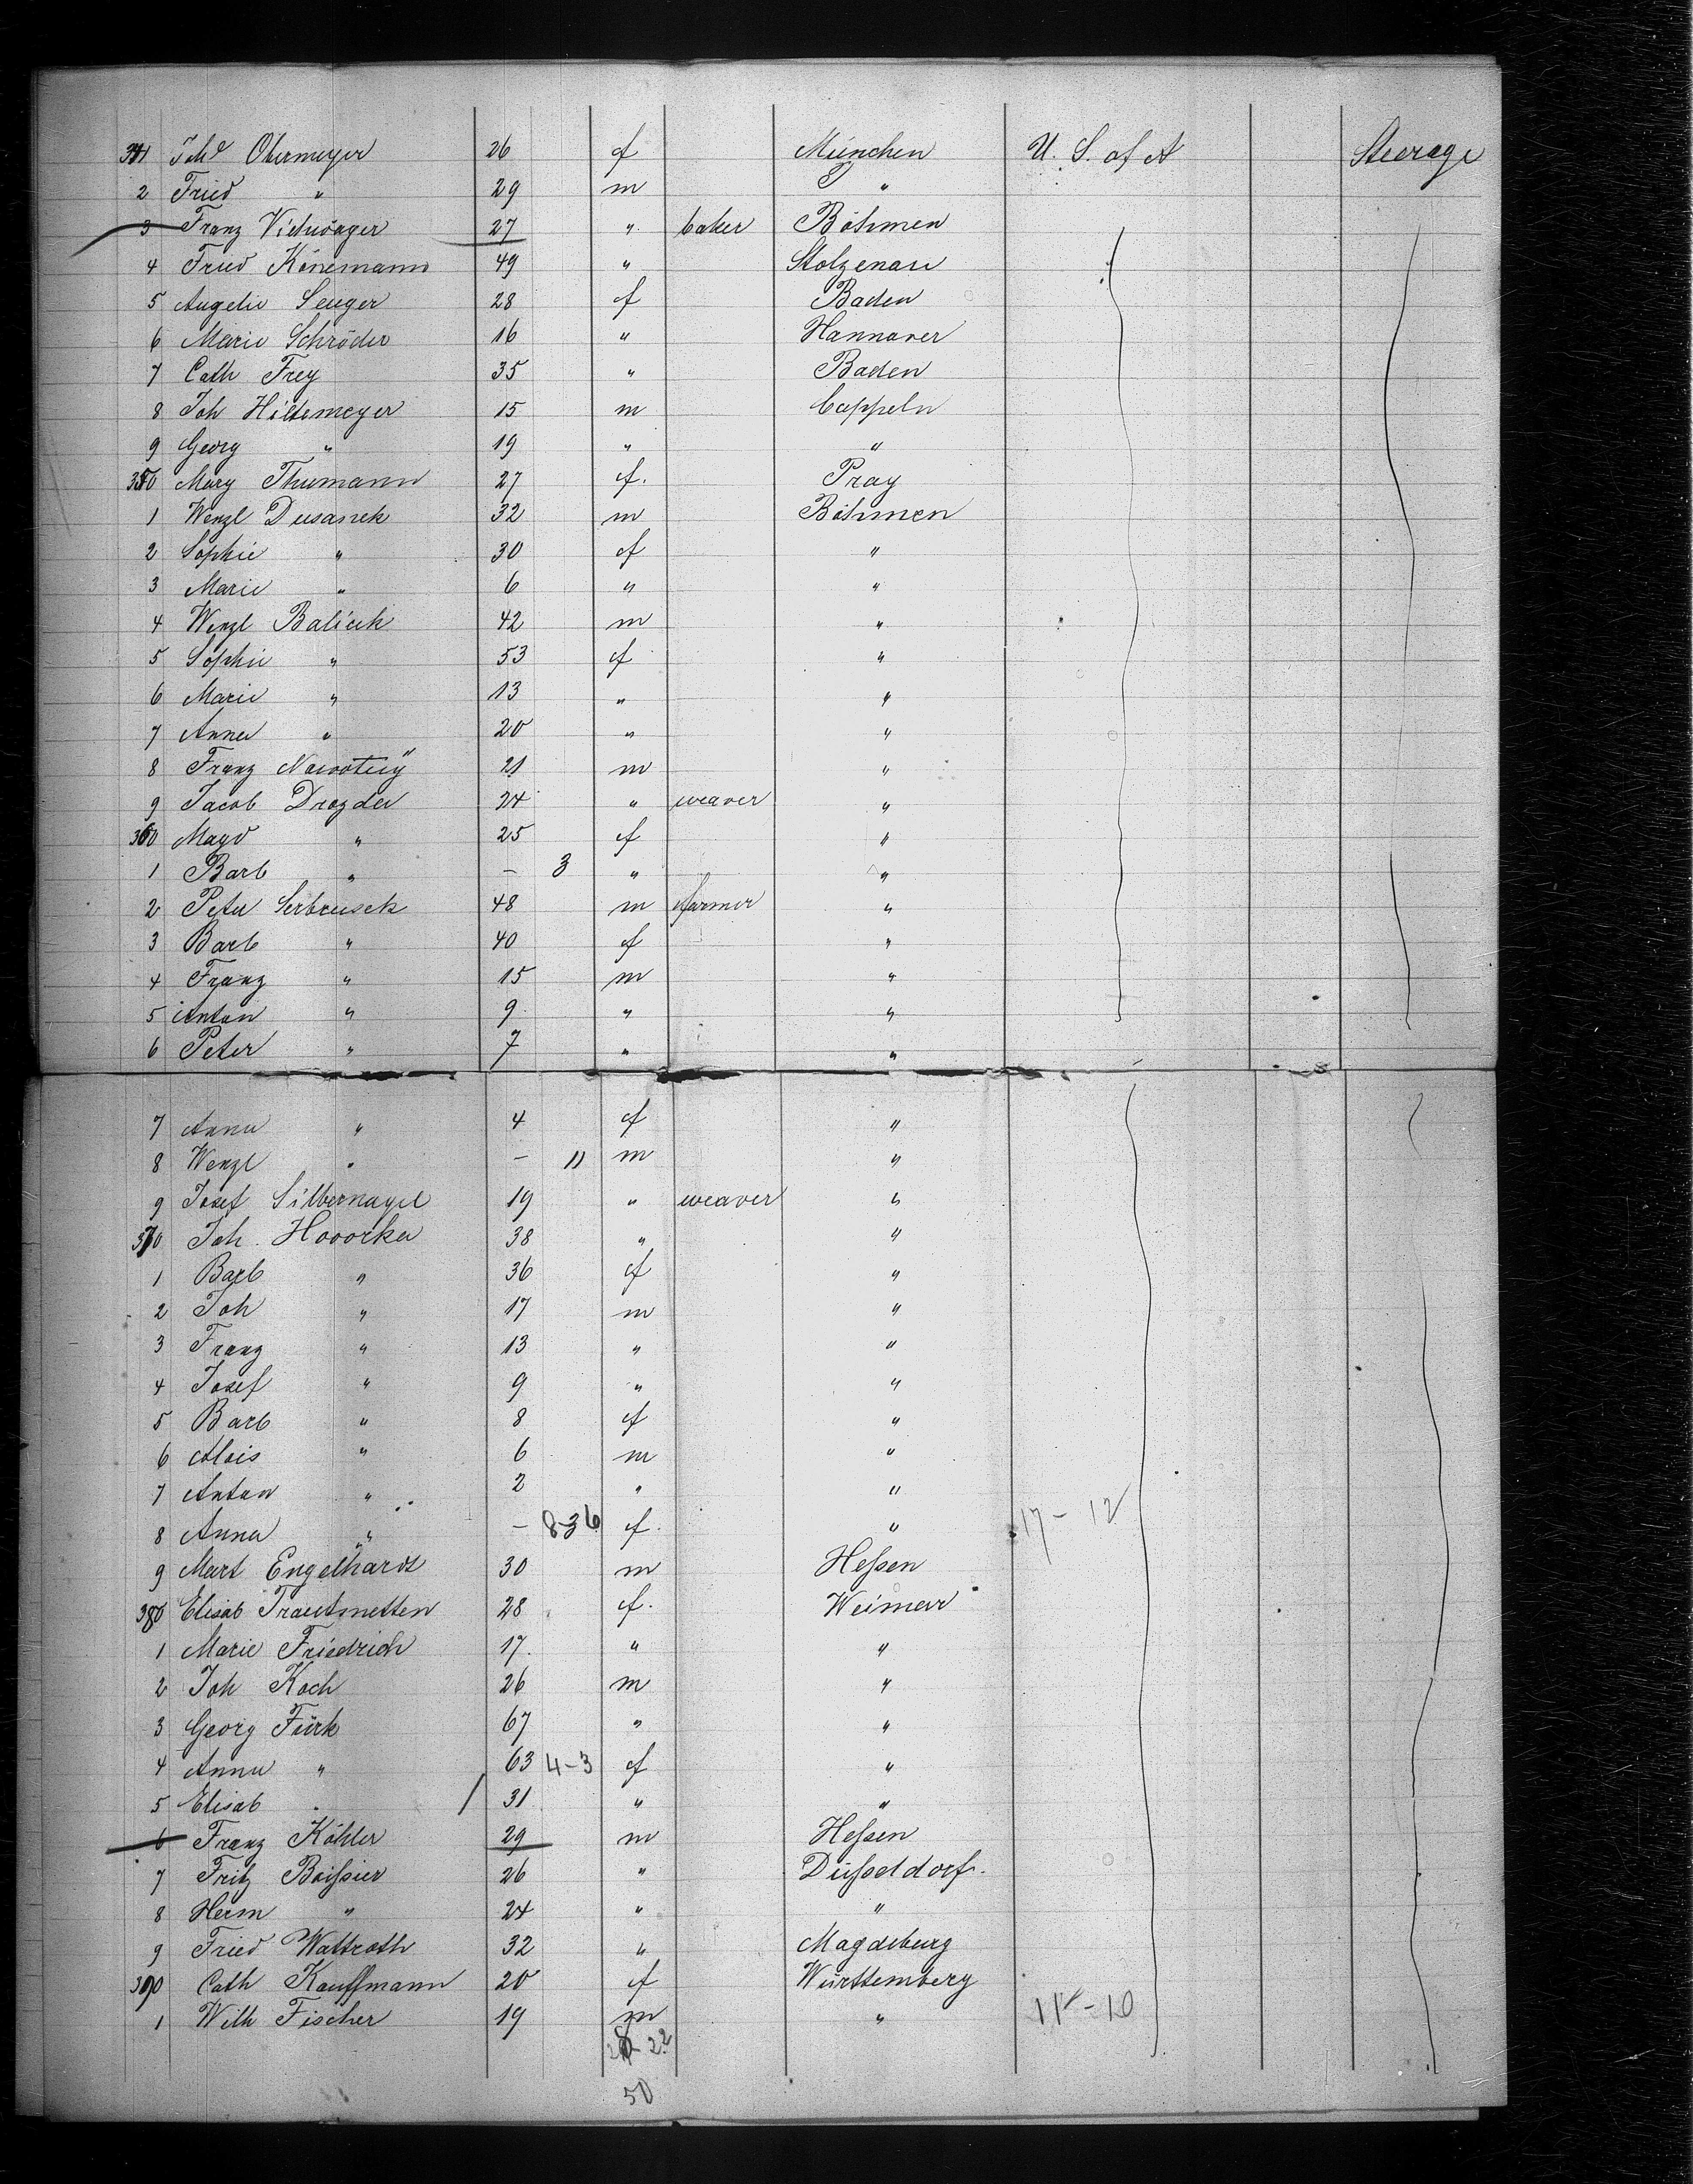 341 Joh⁠ᵈ Obermeyer 26 f München U. S. of A Steerage
2 Fried " 29 m "
3 Franz Vichwäger 27 " baker Böhmen
4 Fried Könemann 49 " Stolzenau
5 Angelie Senger 28 f Baden
6 Marie Schröder 16 " Hannover
7 Cath Frey 35 " Baden
8 Joh Hiltemeyer 15 m Cappeln
9 Georg " 19 " "
350 Mary Thumann 27 f. Prag
1 Wenzl Dusanek 32 m Böhmen
2 Sophie " 30 f "
3 Marie " 6 " "
4 Wenzl Balicek 42 m "
5 Sophie " 53 f "
6 Marie " 13 " "
7 Anna " 20 " "
8 Franz Nowotny 21 m "
9 Jacob Drozda 24 " weaver "
360 Magd " 25 f "
1 Barb " – 3 " "
2 Peter Serbousek 48 m farmer "
3 Barb " 40 f "
4 Franz " 15 m "
5 Anton " 9 " "
6 Peter " 7 " "
7 Anna " 4 f "
8 Wenzl " – 11 m "
9 Josef Silbernagel 19 " weaver "
370 Joh. Hovorka 38 " "
1 Barb " 36 f "
2 Joh " 17 m "
3 Franz " 13 " "
4 Josef " 9 " "
5 Barb " 8 f "
6 Alois " 6 m "
7 Anton " 2 " "
8 Anna " – 8-36 f. " 17 – 12
9 Mart Engelhardt 30 m Hessen
380 Elisab Trautmetten 28 f. Weimar
1 Marie Friedrich 17. " "
2 Joh Koch 26 m "
3 Georg Türk 67 " "
4 Anna " 63 4-3 f "
5 Elisab " 31 " "
6 Franz Köhler 29 m Hessen
7 Fritz Boissier 26 " Düsseldorf.
8 Herm " 24 " "
9 Fried Wattroth 32 " Magdeburg
390 Cath Kauffmann 20 f Württemberg
1 Wilh Fischer 19 m " 11 – 10
28-22
50